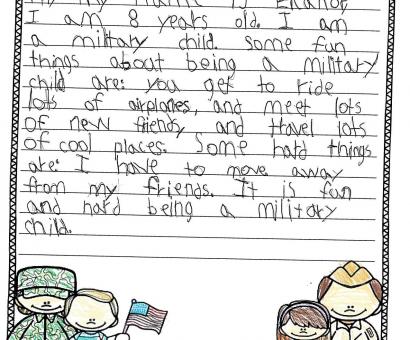 my name is Eleanor
I am 8 years old. I am
a military child some fun
things about being a military
child are: you get to ride
lots of airplanes, and meet lots
of new friends, and travel lots
of cool places. Some hard things
are: I have to move away
from my friends. It is fun
and hard being a military
child.